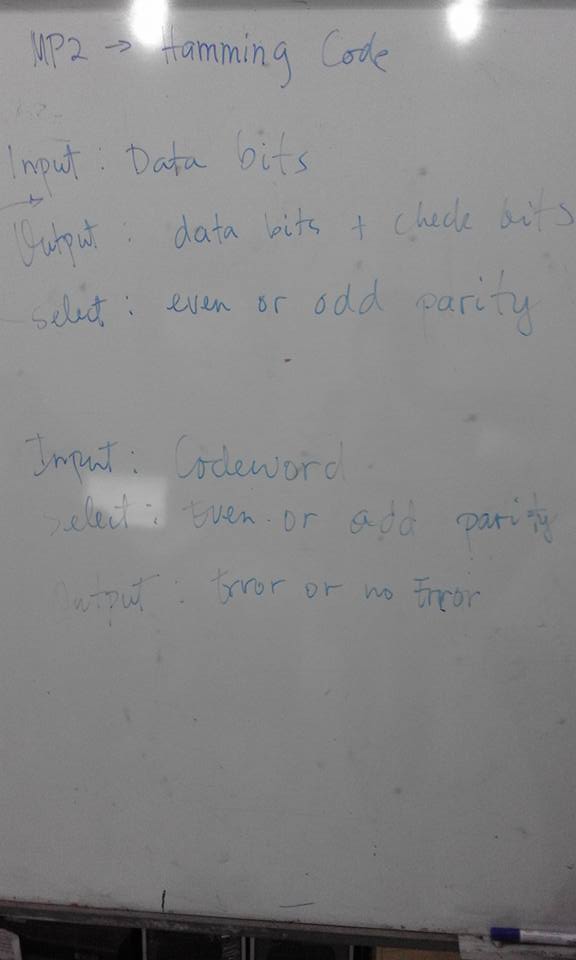 MP2 → Hamming Code
Input : Data bits
Output : data bits + check bits
select : even or odd parity
Input : Codeword
select : Even or add parity
Output : Error or no Error